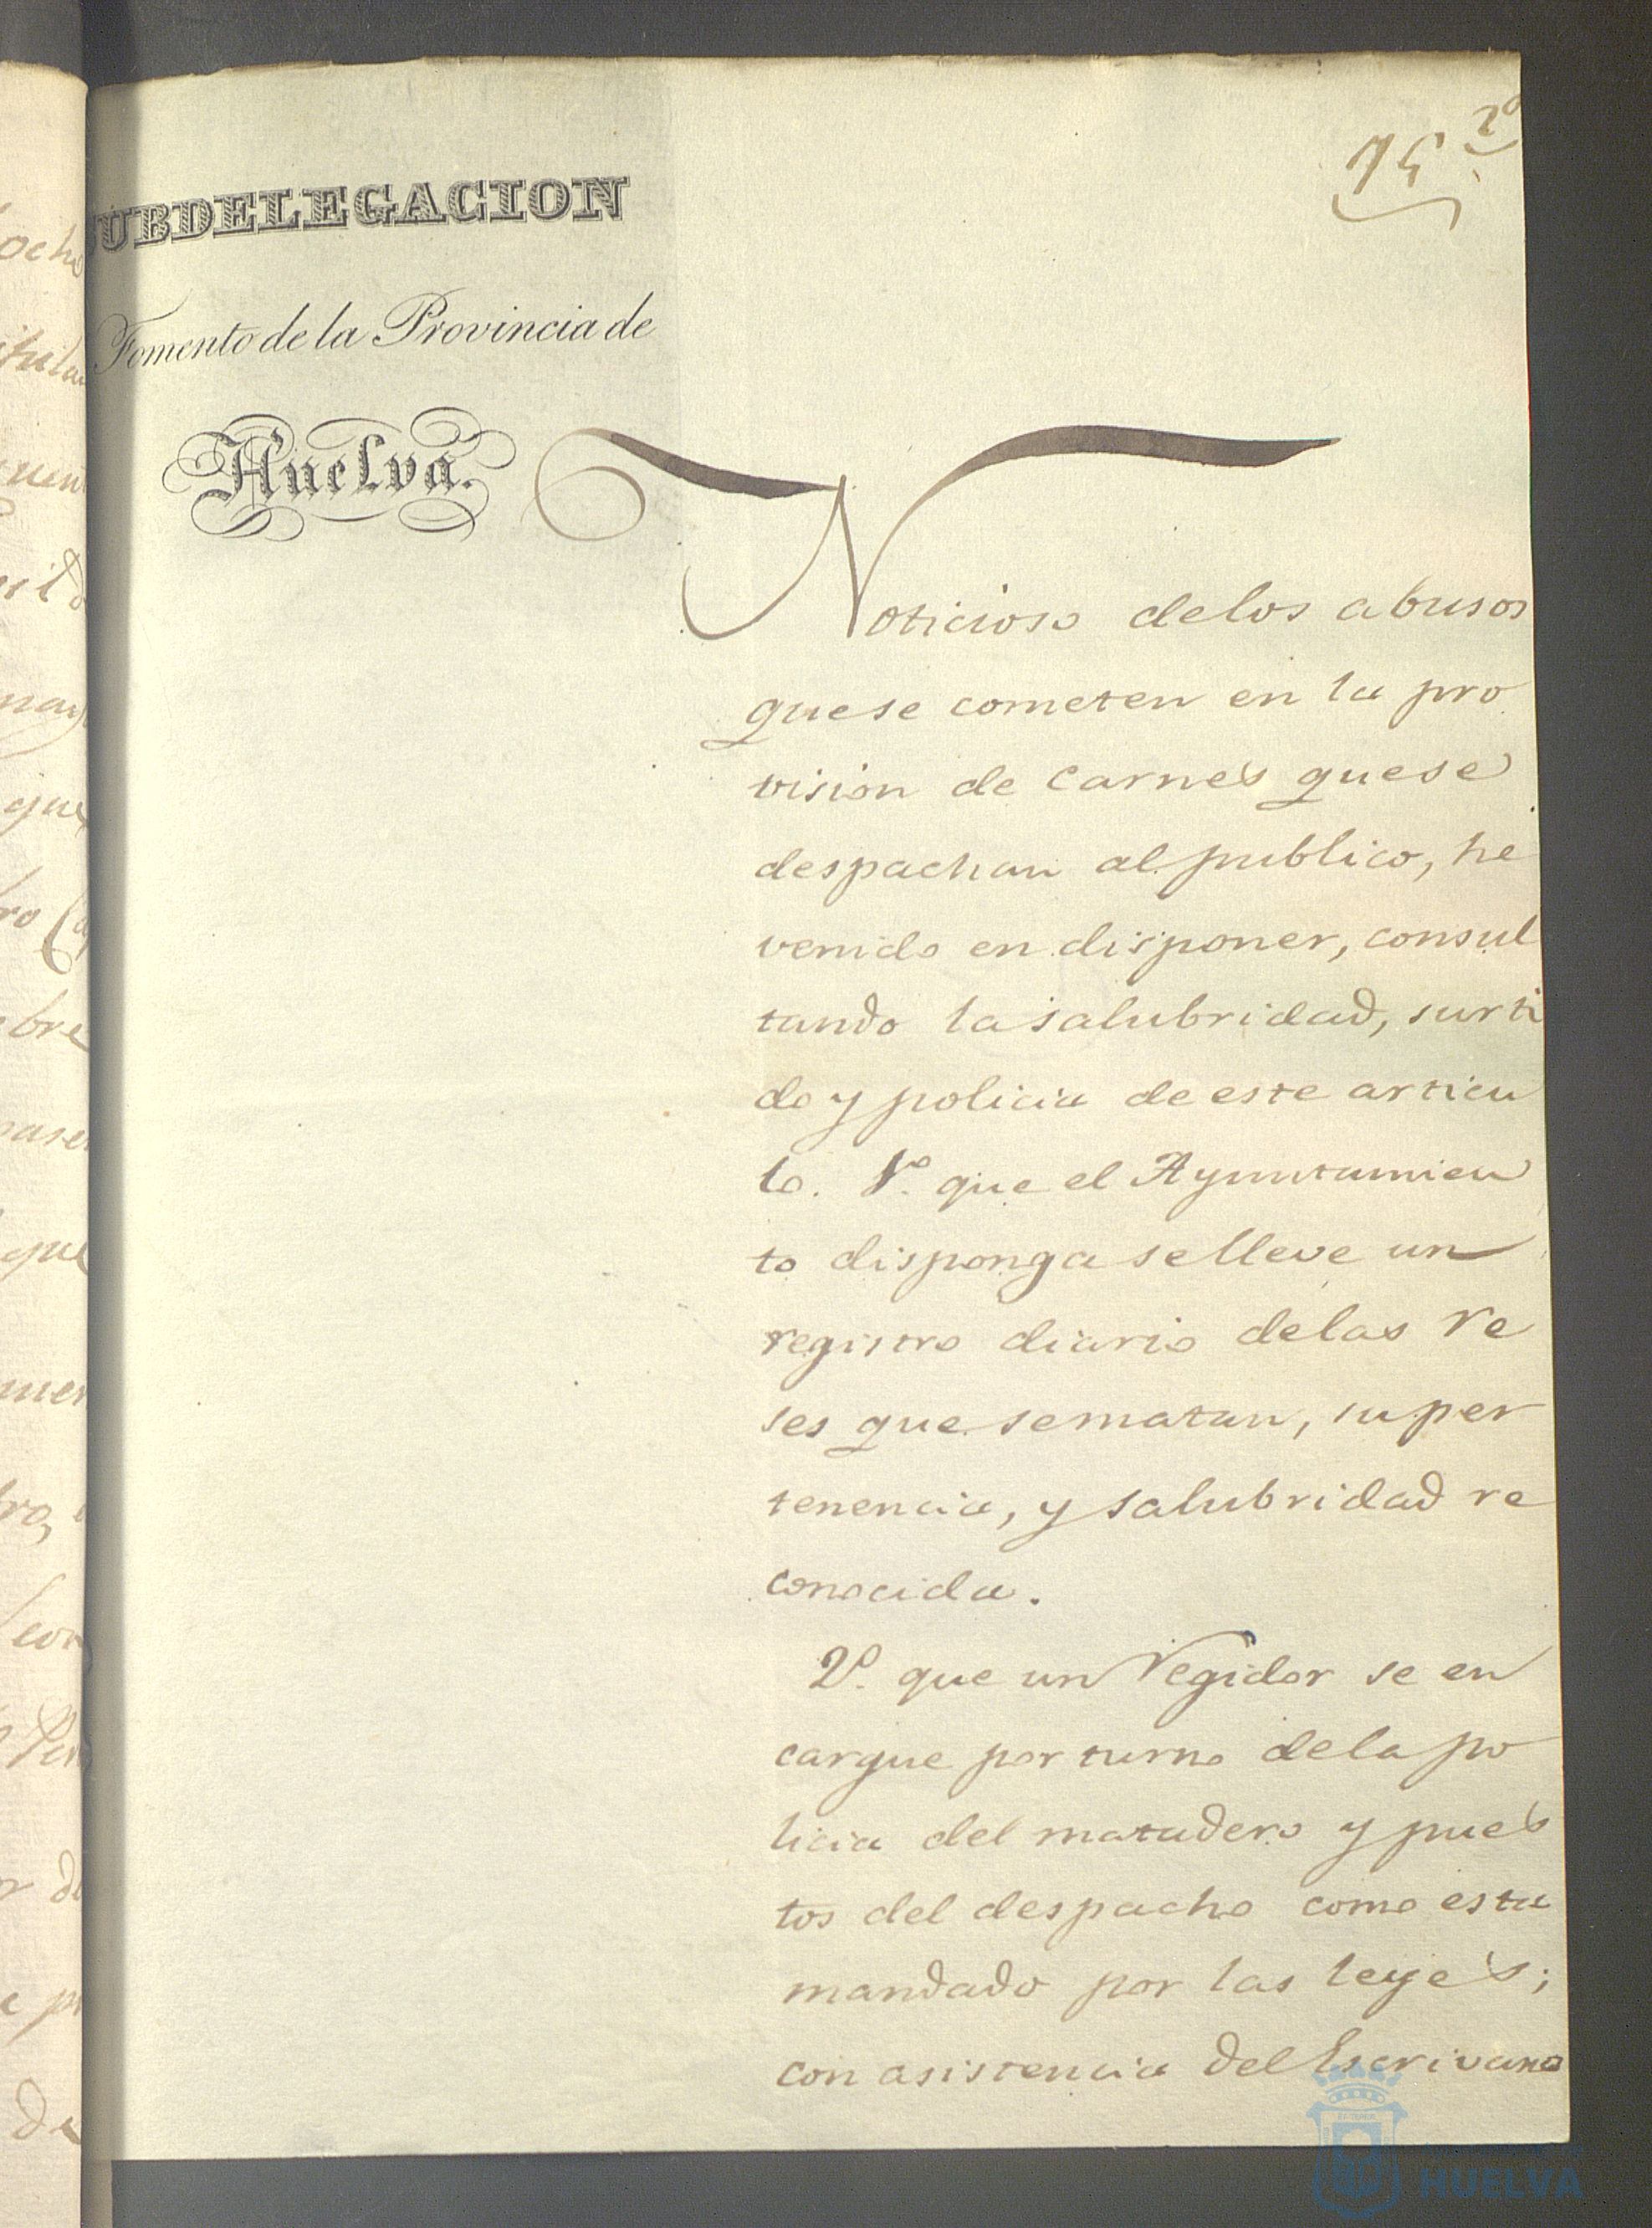 75 2º
UBDELEGACION
Fomento de la Provincia de
Huelva.
Noticioso delos abusos
quese cometen en la pro
vision de Carnes quese
despachan al publico, he
venido en disponer, consul
tando la salubridad, surti
do y policia de este articu
lo. 1º que el Ayuntamien
to disponga se lleve un
registro diario delas re
ses que sematan, su per
tenencia, y salubridad re
conocida.
2º que un regidor se en
cargue por turno dela po
licia del matadero y pues
tos del despacho como esta
mandado por las leyes;
con asistencia del Escrivano
HUELVA